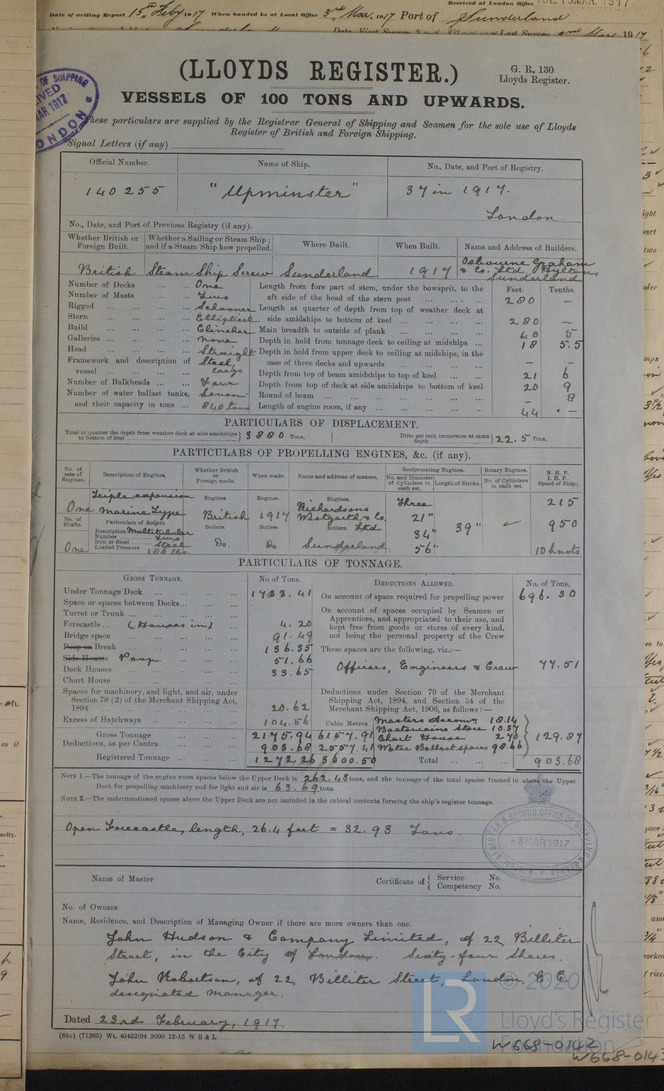 Received at London Office
Date of writing Report 15th Feby 1917 When handed in at Local Office 3rd Mar. 1917 Port of Sunderland
(LLOYDS REGISTER.)
G. R. 130
Lloyds Register.
VESSELS OF 100 TONS AND UPWARDS.
These particulars are supplied by the Registrar General of Shipping and Seamen for the sole use of Lloyds
Register of British and Foreign Shipping.
Signal Letters (if any)
Official Number. Name of Ship. No., Date, and Port of Registry.
140255 "Upminster" 37 in 1917.
London.
No., Date, and Port of Previous Registry (if any).
Whether British or Foreign Built. Whether a Sailing or Steam Ship; and if a Steam Ship how propelled. Where Built. When Built. Name and Address of Builders.
British Steam Ship Screw Sunderland 1917 Osbourne Graham & Co. Ltd, Hylton, Sunderland
Number of Decks ... One
Number of Masts ... Two
Rigged ... Schooner
Stern ... Elliptical
Build ... Clincher
Galleries ... None
Head ... Straight
Framework and description of vessel ... Steel, Cargo
Number of Bulkheads ... Four
Number of water ballast tanks, Seven
and their capacity in tons ... 840 tons
Feet. Tenths.
Length from fore part of stem, under the bowsprit, to the
aft side of the head of the stern post ... 280 —
Length at quarter of depth from top of weather deck at
side amidships to bottom of keel ... 280 —
Main breadth to outside of plank ... 40 5
Depth in hold from tonnage deck to ceiling at midships ... 18 5.5
Depth in hold from upper deck to ceiling at midships, in the
case of three decks and upwards ... — —
Depth from top of beam amidships to top of keel ... 21 6
Depth from top of deck at side amidships to bottom of keel 20 9
Round of beam ... — 8
Length of engine room, if any ... 44 . —
PARTICULARS OF DISPLACEMENT.
Total to quarter the depth from weather deck at side amidships to bottom of keel } 3880 Tons. Ditto per inch immersion at same depth } 22.5 Tons.
PARTICULARS OF PROPELLING ENGINES, &c. (if any).
No. of sets of Engines. Description of Engines. Whether British or Foreign made. When made. Name and address of makers. Reciprocating Engines. Rotary Engines. N.H.P. I.H.P. Speed of Ship.
No. and Diameter of Cylinders in each set. Length of Stroke. No. of Cylinders in each set.
Triple expansion Engines. Engines. Engines. Three 215
One Marine Type British 1917 Richardsons Westgarth & Co. Ltd 21" 39" 950
No. of Shafts. Particulars of Boilers. Boilers. Boilers Boilers. 34"
Description Multitubular
Number Two
Iron or Steel Steel
One Loaded Pressure 180 lbs. Do. Do. Sunderland 56" 10 knots
PARTICULARS OF TONNAGE.
GROSS TONNAGE. No of Tons.
Under Tonnage Deck ... 1733.41
Space or spaces between Decks ...
Turret or Trunk ...
Forecastle ... (Houses in) 4.20
Bridge space 91.49
Poop or Break 136.35
Side Houses Poop 51.66
Deck Houses 33.65
Chart House
Spaces for machinery, and light, and air, under
Section 78 (2) of the Merchant Shipping Act,
1894 20.62
Excess of Hatchways ... 104.56 Cubic Metres
Gross Tonnage 2175.94 6157.91
Deductions, as per Contra 903.68 2557.41
Registered Tonnage 1272.26 3600.50
DEDUCTIONS ALLOWED. No. of Tons.
On account of space required for propelling power 696.30
On account of spaces occupied by Seamen or
Apprentices, and appropriated to their use, and
kept free from goods or stores of every kind,
not being the personal property of the Crew
These spaces are the following, viz.:—
Officers, Engineers & Crew 77.51
Deductions under Section 79 of the Merchant
Shipping Act, 1894, and Section 54 of the
Merchant Shipping Act, 1906, as follows:—
Masters Accom 18.14
Boatswains Store 10.37
Chart House 2.70
Water Ballast spaces 98.66 } 129.87
Total ... 903.68
NOTE 1.—The tonnage of the engine room spaces below the Upper Deck is 262.43 tons, and the tonnage of the total spaces framed in above the Upper
Deck for propelling machinery and for light and air is 63.69 tons.
NOTE 2.—The undermentioned spaces above the Upper Deck are not included in the cubical contents forming the ship's register tonnage.
Open Forecastle, length, 26.4 feet = 32.93 Tons.
3 MAR 1917
Name of Master Certificate of { Service No.
Competency No.
No. of Owners
Name, Residence, and Description of Managing Owner if there are more owners than one.
John Hudson & Company Limited, of 22, Billiter
Street, in the City of London. Sixty-four Shares.
John Robertson, of 22, Billiter Street, London E.C.
designated manager.
Dated 23rd February, 1917.
(83o) (71265) Wt. 40422/94 2000 12-15 W B & L
LR
© 2020
Lloyd's Register
Foundation
W668-0142
W668-0143